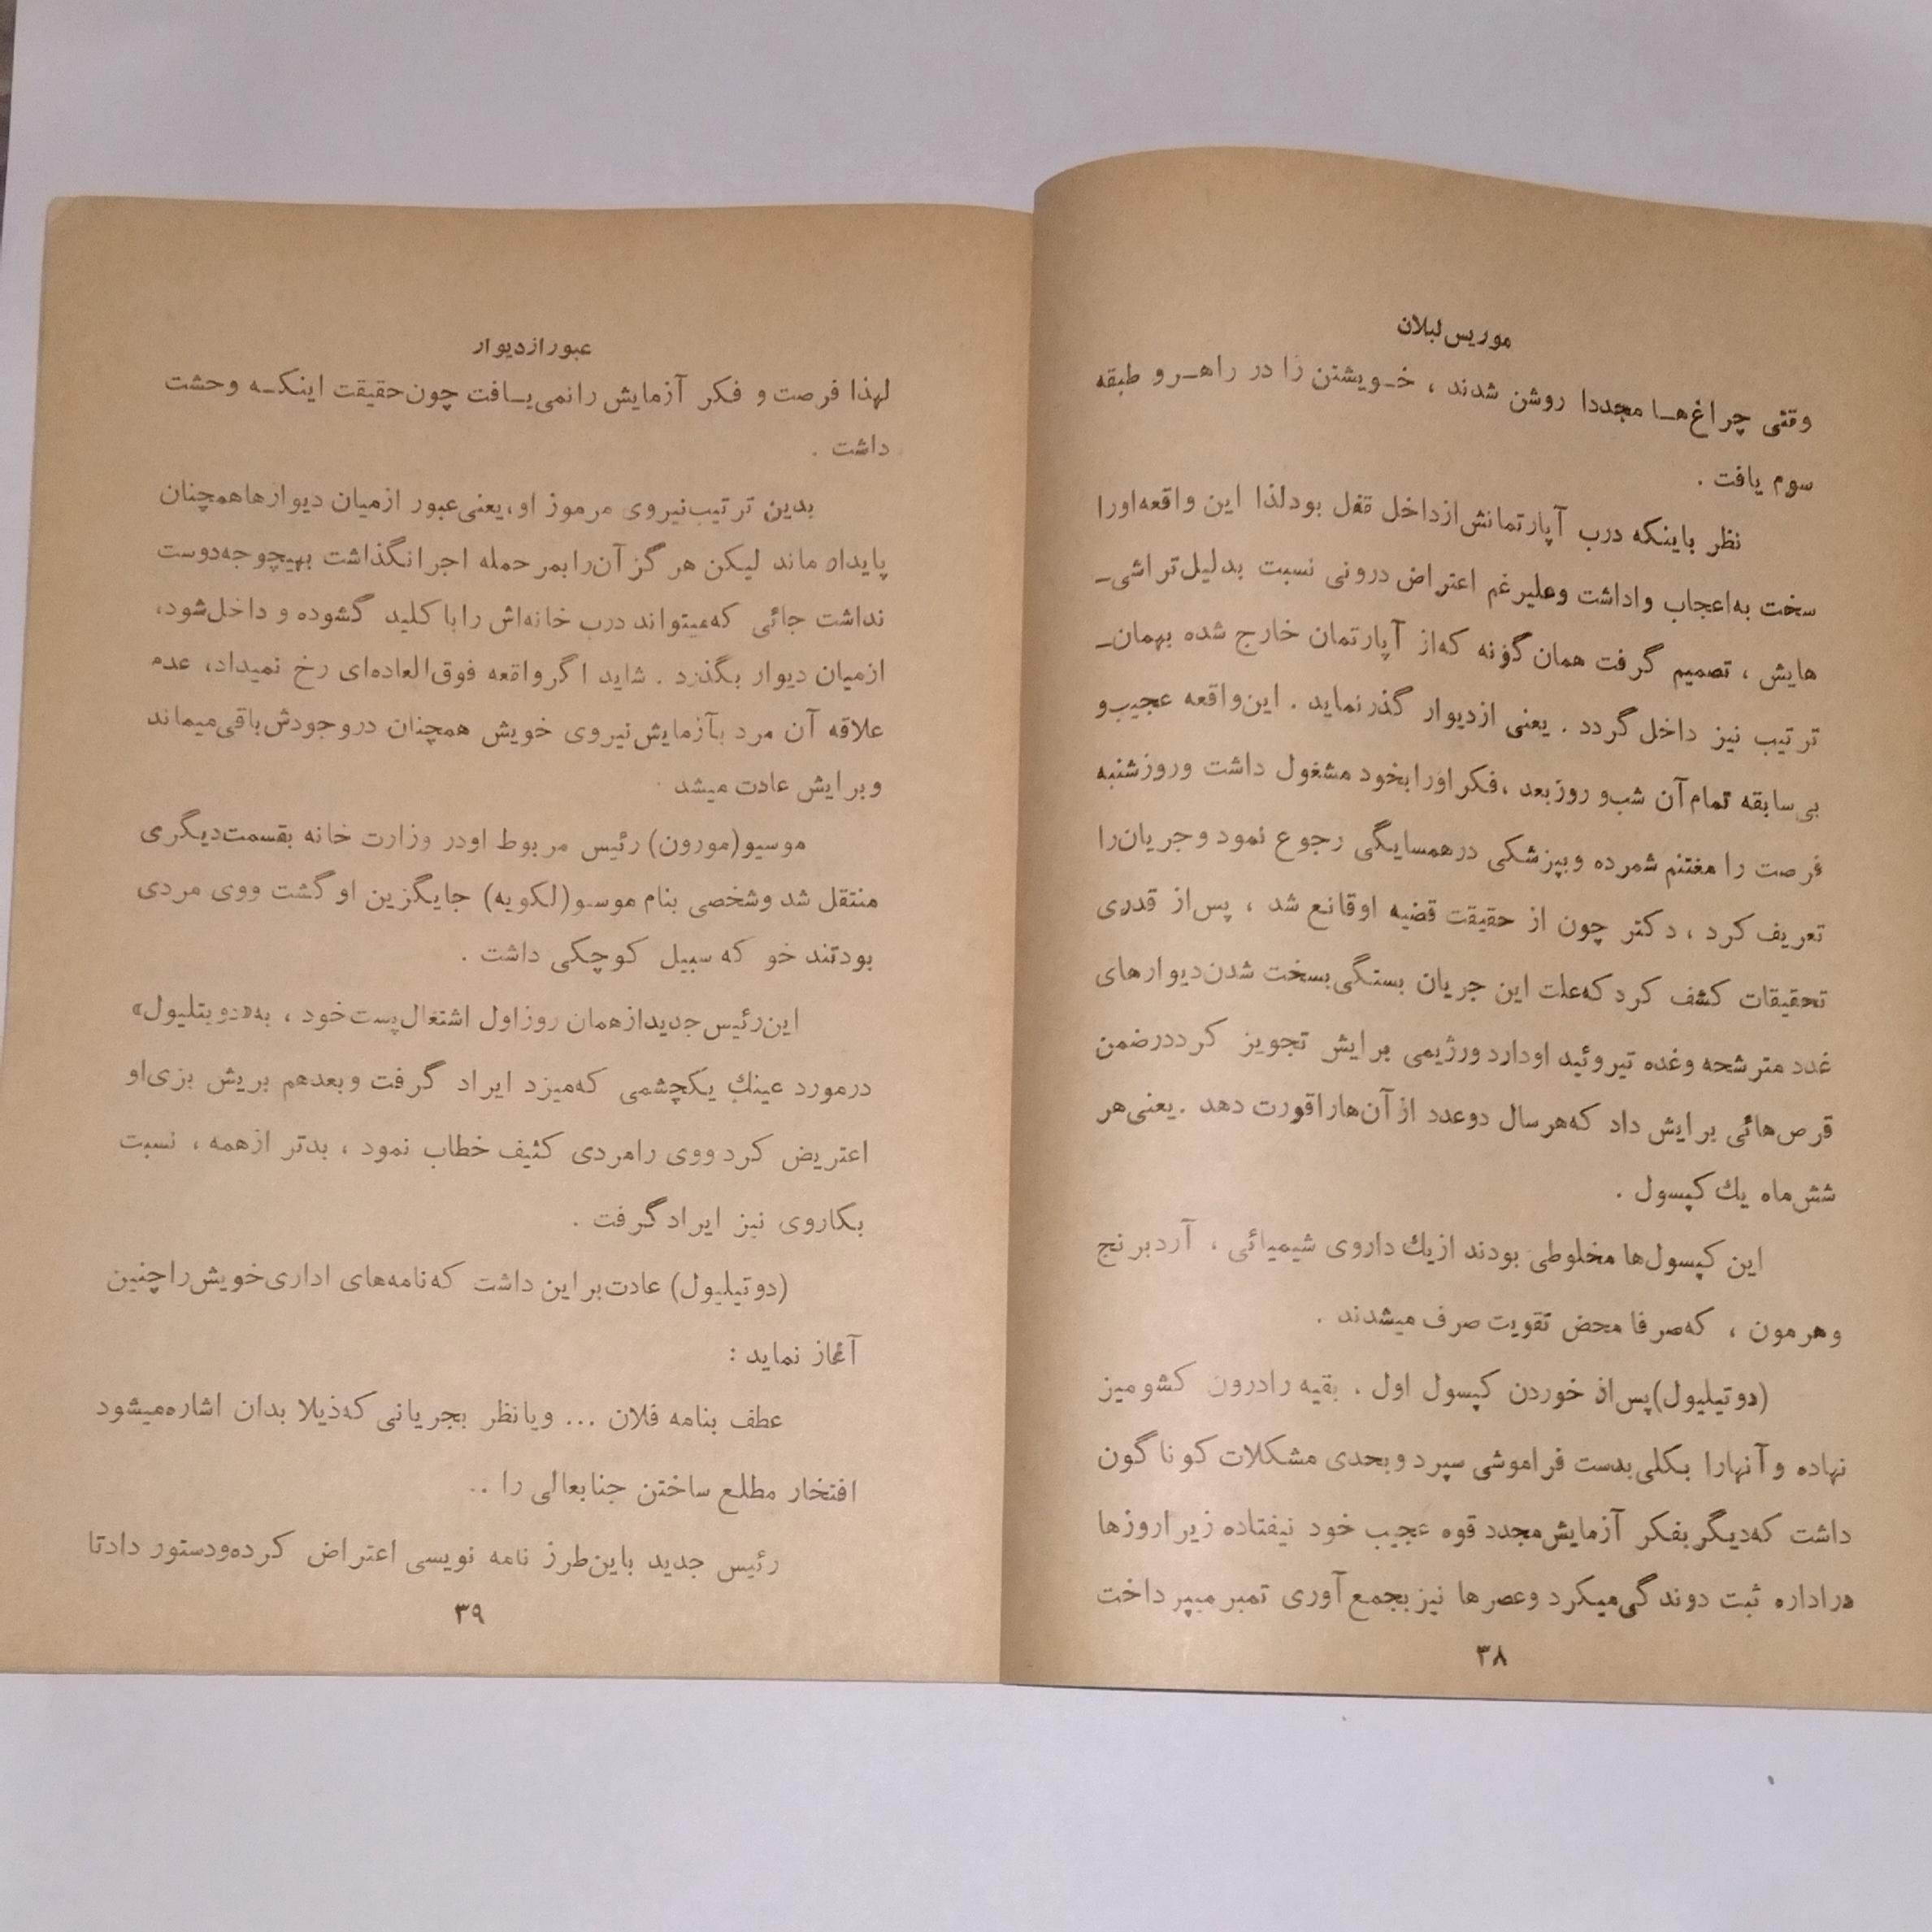 موریس لبلان
وقتی چراغ‌هـا مجددا روشن شدند ، خـویشتن را در راهـرو طبقه
سوم یافت .
نظر باینکه درب آپارتمانش از داخل قفل بود لذا این واقعه اورا
سخت به اعجاب واداشت وعلیرغم اعتراض درونی نسبت بدلیل تراشی‌ـ
هایش ، تصمیم گرفت همان گونه که از آپارتمان خارج شده بهمان‌ـ
ترتیب نیز داخل گردد . یعنی از دیوار گذر نماید . این واقعه عجیب و
بی سابقه تمام آن شب و روز بعد ، فکر اورا بخود مشغول داشت و روز شنبه
فرصت را مغتنم شمرده و بپزشکی در همسایگی رجوع نمود و جریان را
تعریف کرد ، دکتر چون از حقیقت قضیه او قانع شد ، پس از قدری
تحقیقات کشف کرد که علت این جریان بستگی بسخت شدن دیوارهای
غدد مترشحه وغده تیروئید او دارد ورژیمی برایش تجویز کرد درضمن
قرص‌هائی برایش داد که هر سال دو عدد از آن‌ها را قورت دهد . یعنی هر
شش ماه یك کپسول .
این کپسول‌ها مخلوطی بودند از یك داروی شیمیائی ، آرد برنج
وهرمون ، که صرفا محض تقویت صرف میشدند .
(دوتیلیول) پس از خوردن کپسول اول ، بقیه را درون کشو میز
نهاده و آنهارا بکلی بدست فراموشی سپرد و بحدی مشکلات کوناگون
داشت که دیگر بفکر آزمایش مجدد قوه عجیب خود نیفتاده زیرا روزها
در اداره ثبت دوندگی میکرد وعصرها نیز بجمع آوری تمبر میپرداخت
۳۸
عبور از دیوار
لهذا فرصت و فکر آزمایش را نمی‌یـافت چون حقیقت اینکـه وحشت
داشت .
بدین ترتیب نیروی مرموز او، یعنی عبور از میان دیوارها همچنان
پایداه ماند لیکن هرگز آن را بمرحمله اجرا نگذاشت بهیچوجه دوست
نداشت جائی که میتواند درب خانه‌اش را با کلید گشوده و داخل شود،
از میان دیوار بگذرد . شاید اگر واقعه فوق العاده‌ای رخ نمیداد، عدم
علاقه آن مرد بآزمایش نیروی خویش همچنان در وجودش باقی میماند
و برایش عادت میشد .
موسیو (مورون) رئیس مربوط او در وزارت خانه بقسمت دیگری
منتقل شد وشخصی بنام موسیو (لکویه) جایگزین او گشت ووی مردی
بود تند خو که سبیل کوچکی داشت .
این رئیس جدید از همان روز اول اشتغال پست خود ، به «دویتلیول»
در مورد عینك یکچشمی که میزد ایراد گرفت و بعد هم بریش بزی او
اعتریض کرد ووی را مردی کثیف خطاب نمود ، بدتر از همه ، نسبت
بکاروی نیز ایراد گرفت .
(دوتیلیول) عادت بر این داشت که نامه‌های اداری خویش را چنین
آغاز نماید :
عطف بنامه فلان ... و یا نظر بجریانی که ذیلا بدان اشاره میشود
افتخار مطلع ساختن جنابعالی را ..
رئیس جدید باین طرز نامه نویسی اعتراض کرده و دستور داد تا
۳۹